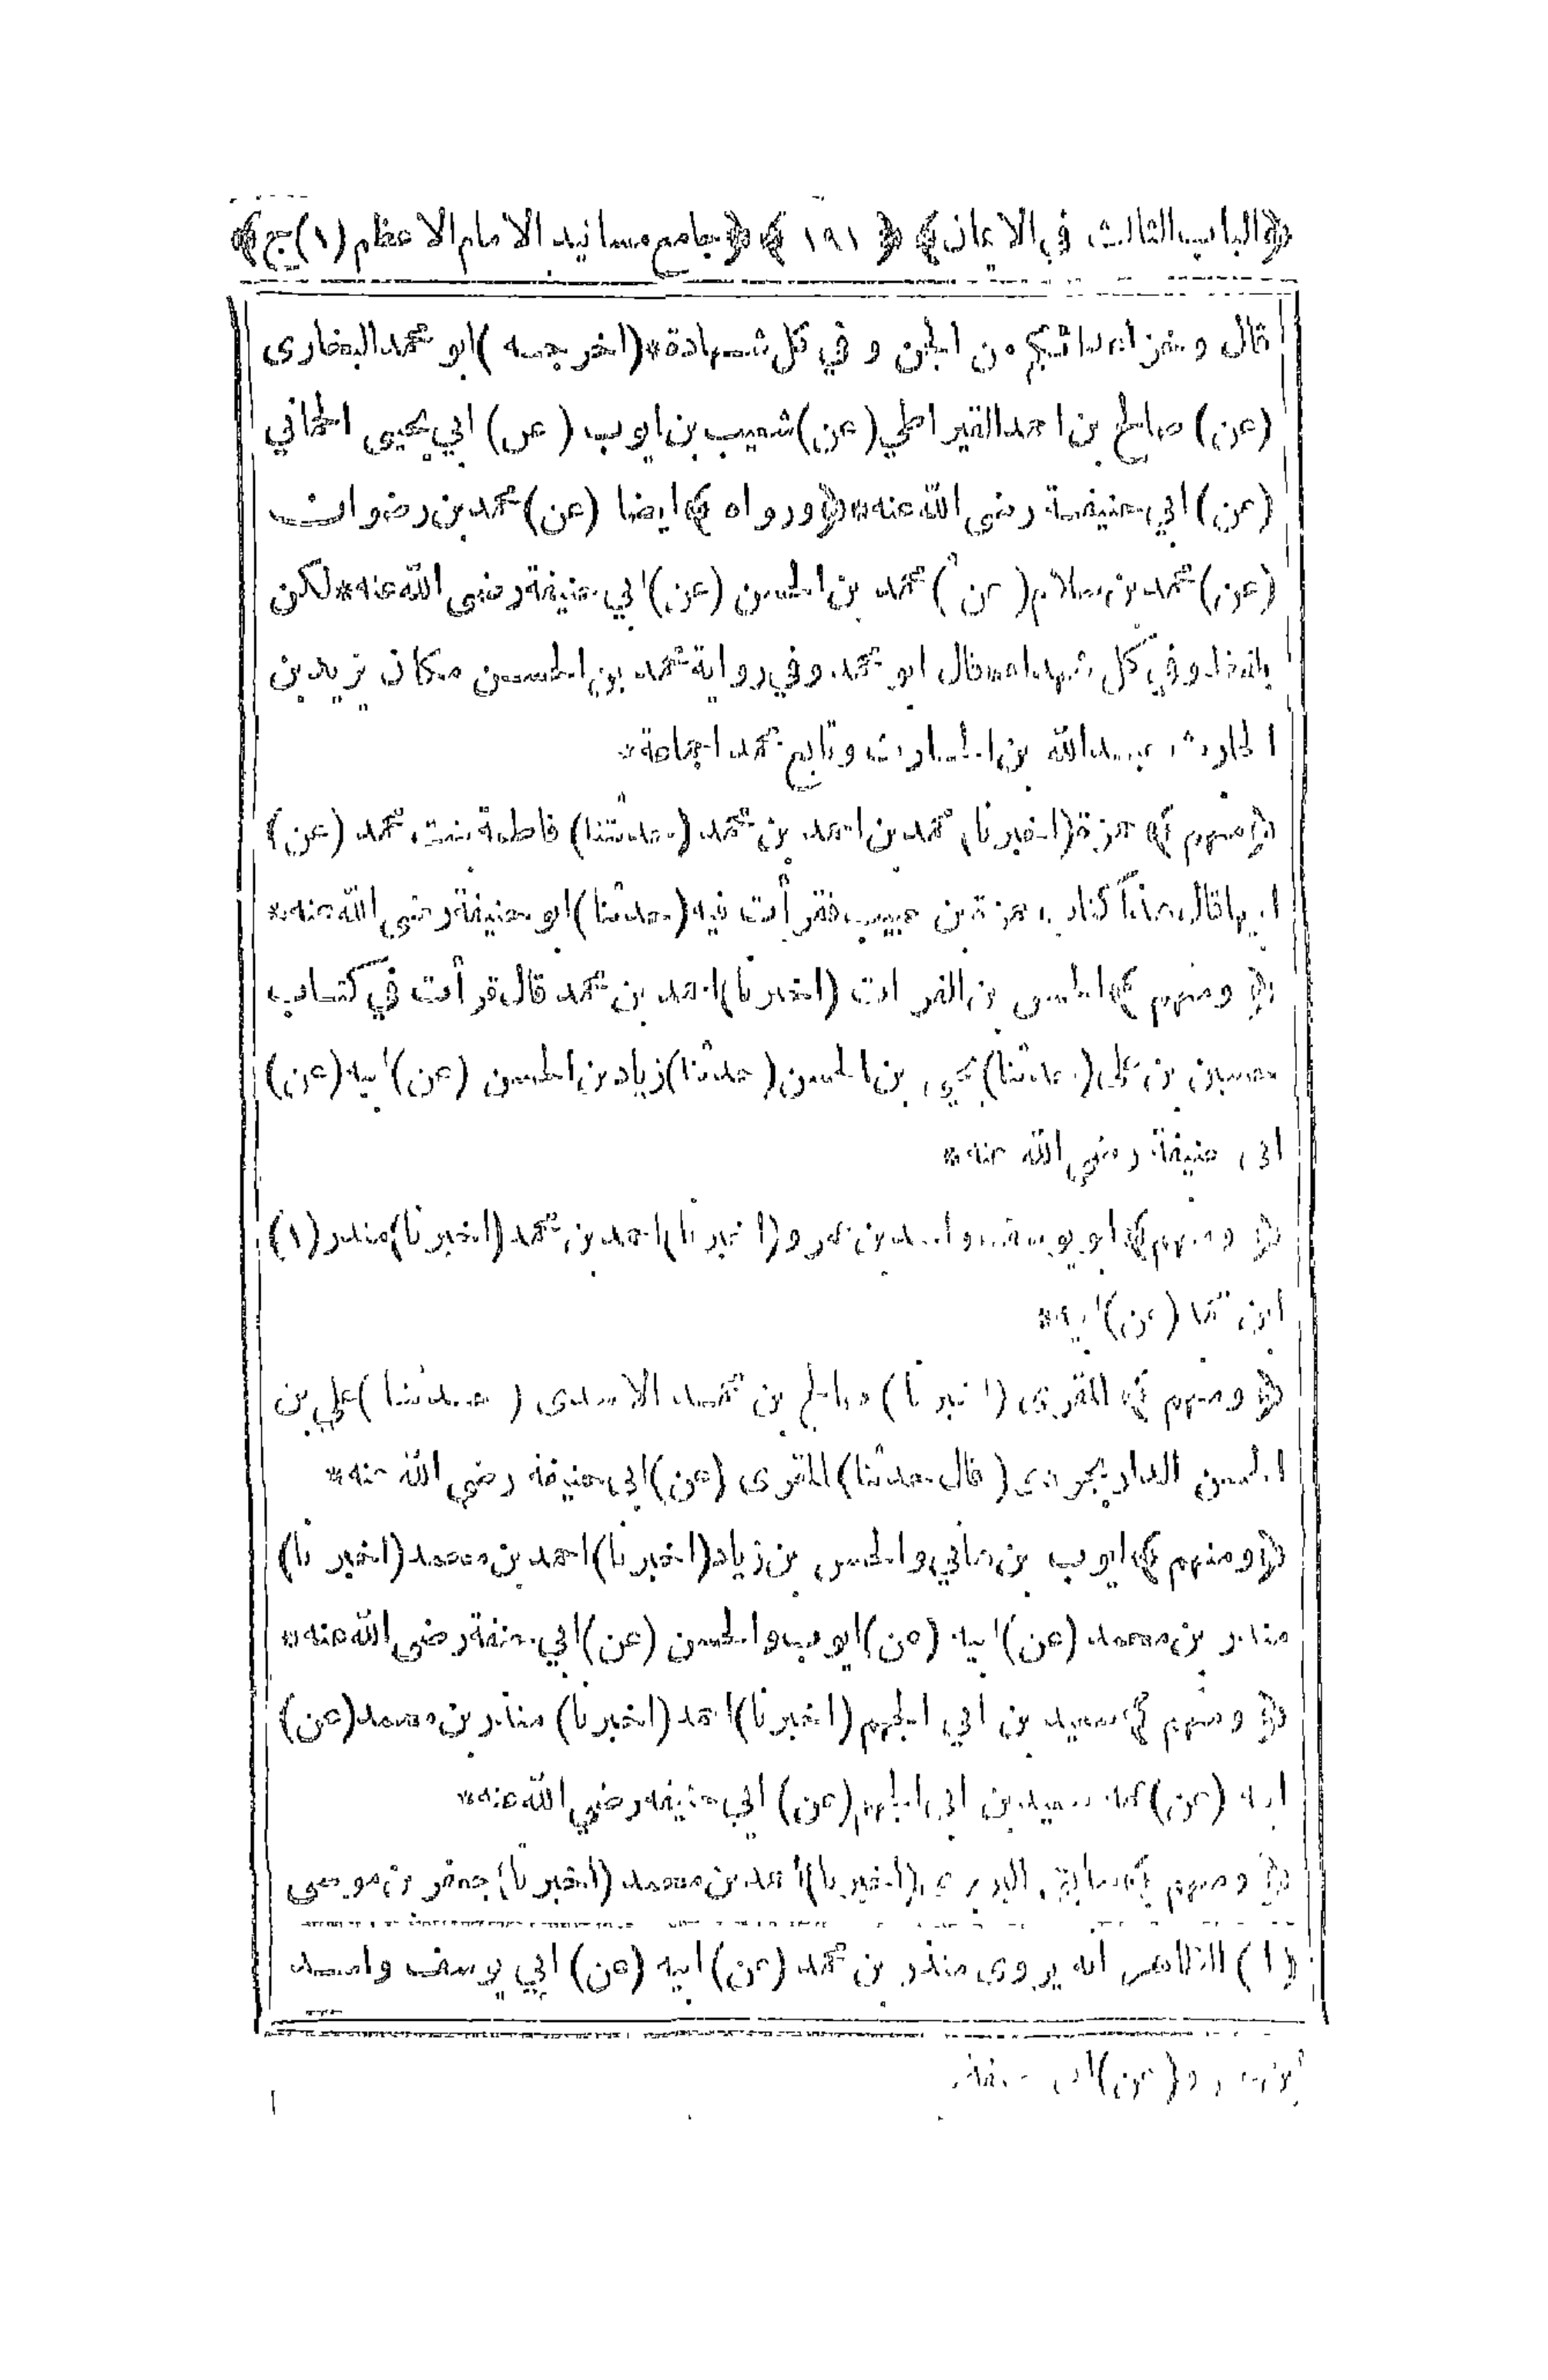 ﴿الباب الثالث في الايمان﴾ ﴿١٩١﴾ ﴿جامع مسانيد الامام الاعظم (١) ج﴾
قال وخز اعدائكم من الجن و في كل شهادة*(اخرجه )ابو محمد البخارى
(عن) صالح بن احمد القيراطي (عن) شعيب بن ايوب (عن) ابي يحيى الحماني
(عن) ابي حنيفة رضى الله عنه*﴿ورواه﴾ ايضا (عن) محمد بن رضوان
(عن) محمد بن سلام (عن) محمد بن الحسن (عن) ابي حنيفة رضى الله عنه*لكن
وفي كل قال ابو محمد وفي رواية محمد بن الحسن مكان يزيد بن
الحارث عبد الله بن الحارث وتابع محمد اجماعة*
﴿منهم﴾ حمزة (اخبرنا) محمد بن احمد بن محمد (حدثتنا) فاطمة بنت محمد (عن)
ابيها قال هذا كتاب حمزة بن حبيب فقرأت فيه (حدثنا) ابو حنيفة رضى الله عنه*
﴿ومنهم﴾ الحسن بن الفرات (اخبرنا) احمد بن محمد قال قرأت في كتاب
حسين بن علي (حدثنا) يحيى بن الحسن (حدثنا) زياد بن الحسن (عن) ابيه (عن)
ابى حنيفة رضي الله عنه*
﴿ومنهم﴾ ابو يوسف واسد بن عمرو (اخبرنا) احمد بن محمد (اخبرنا) منذر (١)
ابن محمد (عن) ابيه*
﴿ومنهم﴾ المقرى (اخبرنا) صالح بن محمد الاسدى (حدثنا) علي بن
الحسن الدار بجردى (قال حدثنا) المقرى (عن) ابى حنيفة رضي الله عنه*
﴿ومنهم﴾ ايوب بن هاني والحسن بن زياد (اخبرنا) احمد بن محمد (اخبرنا)
منذر بن محمد (عن) ابيه (عن) ايوب والحسن (عن) ابي حنيفة رضى الله عنه*
﴿ومنهم﴾ سعيد بن ابي الجهم (اخبرنا) احمد (اخبرنا) منذر بن محمد (عن)
ابيه (عن) عمه سعيد بن ابى الجهم (عن) ابي حنيفة رضي الله عنه*
﴿ومنهم﴾ سابق البربرى (اخبرنا) احمد بن محمد (اخبرنا) جعفر بن موسى
(١) الظاهر انه يروى منذر بن محمد (عن) ابيه (عن) ابي يوسف واسد
بن عمرو (عن) ابى حنيفة